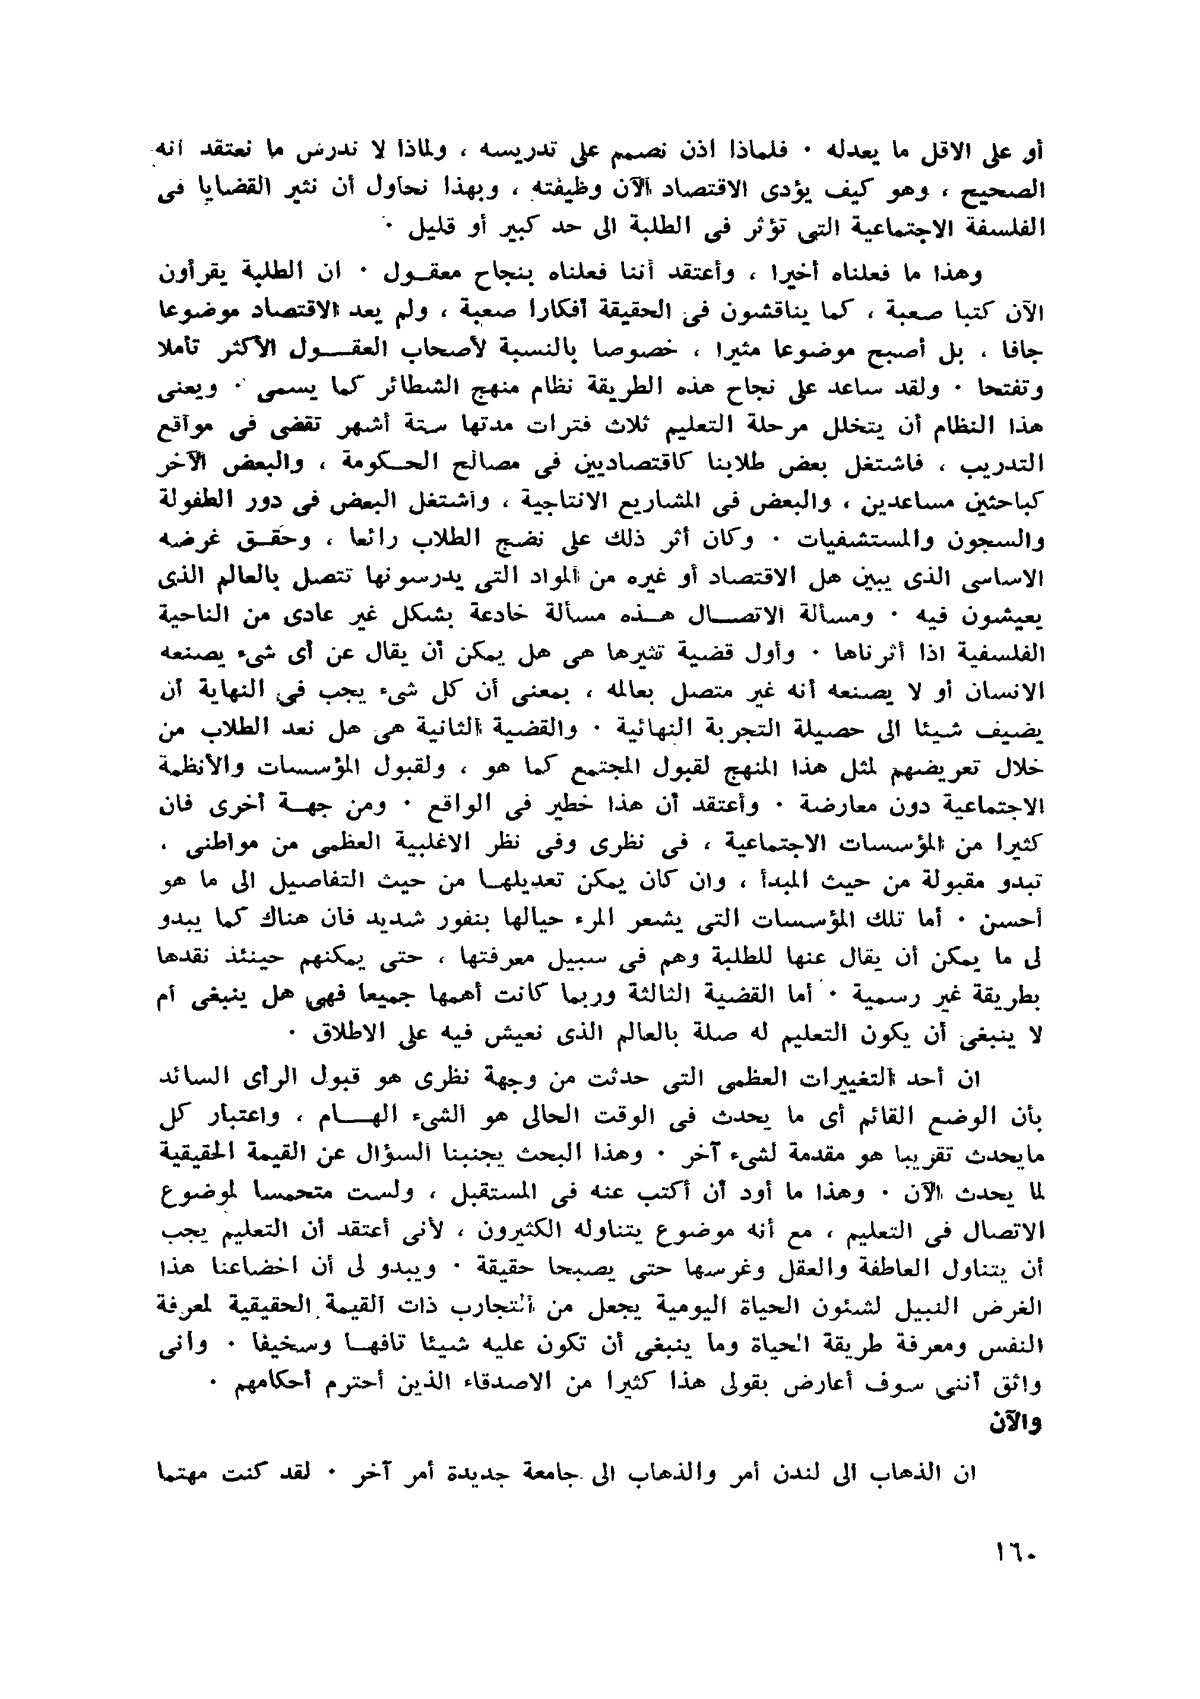 أو على الاقل ما يعدله · فلماذا اذن نصمم على تدريسه ، ولماذا لا ندرس ما نعتقد أنه
الصحيح ، وهو كيف يؤدى الاقتصاد الآن وظيفته ، وبهذا نحاول أن نثير القضايا فى
الفلسفة الاجتماعية التى تؤثر فى الطلبة الى حد كبير أو قليل ·
وهذا ما فعلناه أخيرا ، وأعتقد أننا فعلناه بنجاح معقــول · ان الطلبة يقرأون
الآن كتبا صعبة ، كما يناقشون فى الحقيقة أفكارا صعبة ، ولم يعد الاقتصاد موضوعا
جافا ، بل أصبح موضوعا مثيرا ، خصوصا بالنسبة لأصحاب العقــول الأكثر تأملا
وتفتحا · ولقد ساعد على نجاح هذه الطريقة نظام منهج الشطائر كما يسمى · ويعنى
هذا النظام أن يتخلل مرحلة التعليم ثلاث فترات مدتها ستة أشهر تقضى فى مواقع
التدريب ، فاشتغل بعض طلابنا كاقتصاديين فى مصالح الحــكومة ، والبعض الآخر
كباحثين مساعدين ، والبعض فى المشاريع الانتاجية ، واشتغل البعض فى دور الطفولة
والسجون والمستشفيات · وكان أثر ذلك على نضج الطلاب رائعا ، وحقــق غرضه
الاساسى الذى يبين هل الاقتصاد أو غيره من المواد التى يدرسونها تتصل بالعالم الذى
يعيشون فيه · ومسألة الاتصــال هــذه مسألة خادعة بشكل غير عادى من الناحية
الفلسفية اذا أثرناها · وأول قضية تثيرها هى هل يمكن أن يقال عن أى شىء يصنعه
الانسان أو لا يصنعه أنه غير متصل بعالمه ، بمعنى أن كل شىء يجب فى النهاية أن
يضيف شيئا الى حصيلة التجربة النهائية · والقضية الثانية هى هل نعد الطلاب من
خلال تعريضهم لمثل هذا المنهج لقبول المجتمع كما هو ، ولقبول المؤسسات والأنظمة
الاجتماعية دون معارضة · وأعتقد أن هذا خطير فى الواقع · ومن جهــة أخرى فان
كثيرا من المؤسسات الاجتماعية ، فى نظرى وفى نظر الاغلبية العظمى من مواطنى ،
تبدو مقبولة من حيث المبدأ ، وان كان يمكن تعديلهــا من حيث التفاصيل الى ما هو
أحسن · أما تلك المؤسسات التى يشعر المرء حيالها بنفور شديد فان هناك كما يبدو
لى ما يمكن أن يقال عنها للطلبة وهم فى سبيل معرفتها ، حتى يمكنهم حينئذ نقدها
بطريقة غير رسمية · أما القضية الثالثة وربما كانت أهمها جميعا فهى هل ينبغى أم
لا ينبغى أن يكون التعليم له صلة بالعالم الذى نعيش فيه على الاطلاق ·
ان أحد التغييرات العظمى التى حدثت من وجهة نظرى هو قبول الرأى السائد
بأن الوضع القائم أى ما يحدث فى الوقت الحالى هو الشىء الهــام ، واعتبار كل
مايحدث تقريبا هو مقدمة لشىء آخر · وهذا البحث يجنبنا السؤال عن القيمة الحقيقية
لما يحدث الآن · وهذا ما أود أن أكتب عنه فى المستقبل ، ولست متحمسا لموضوع
الاتصال فى التعليم ، مع أنه موضوع يتناوله الكثيرون ، لأنى أعتقد أن التعليم يجب
أن يتناول العاطفة والعقل وغرسها حتى يصبحا حقيقة · ويبدو لى أن اخضاعنا هذا
الغرض النبيل لشئون الحياة اليومية يجعل من التجارب ذات القيمة الحقيقية لمعرفة
النفس ومعرفة طريقة الحياة وما ينبغى أن تكون عليه شيئا تافهــا وسخيفا · وانى
واثق أننى سوف أعارض بقولى هذا كثيرا من الاصدقاء الذين أحترم أحكامهم ·
والآن
ان الذهاب الى لندن أمر والذهاب الى جامعة جديدة أمر آخر · لقد كنت مهتما
١٦٠